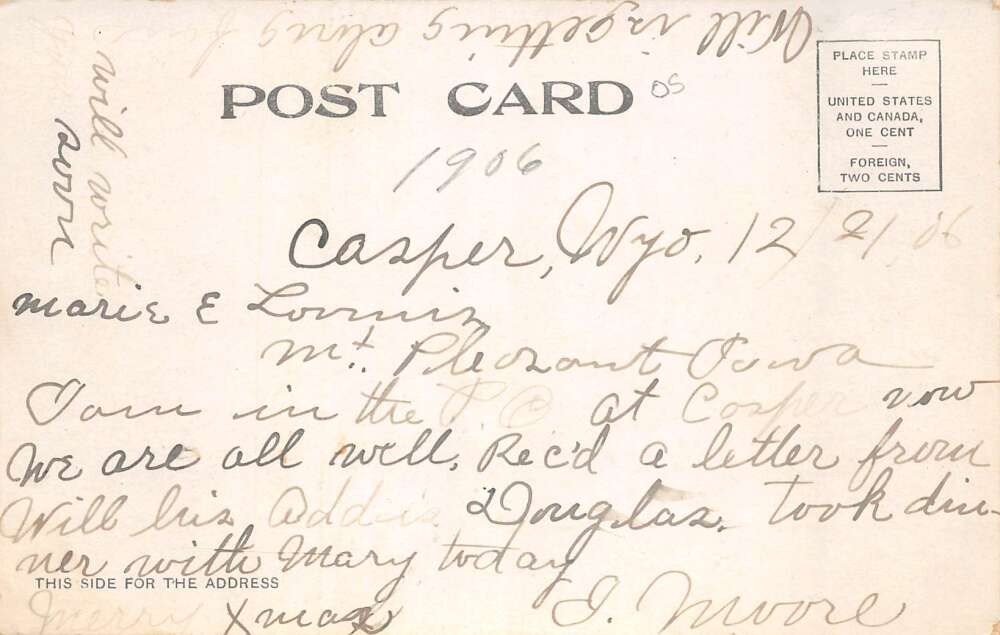 POST CARD
OS
PLACE STAMP
HERE
UNITED STATES
AND CANADA,
ONE CENT
FOREIGN,
TWO CENTS
1906
Casper, Wyo, 12/21/06
Marie E Loomis
Mt. Pleasant Iowa
I am in the P.O at Casper now
We are all well. Rec'd a letter from
Will his Add is Douglas. took din-
ner with Mary today
THIS SIDE FOR THE ADDRESS
Merry Xmas
I. Moore
Will is getting along fine
will write
soon